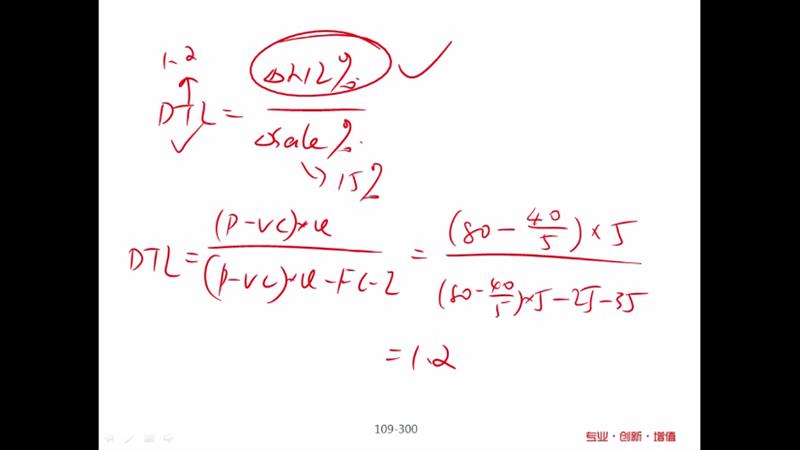 1.2
DTL = ΔNI% / Δsale%
↳ 15%
DTL = (P-VC)×Q / ((P-VC)×Q-FC-I) = (80 - 40/5)×5 / ((80-40/5)×5-25-35)
= 1.2
109-300
专业·创新·增值